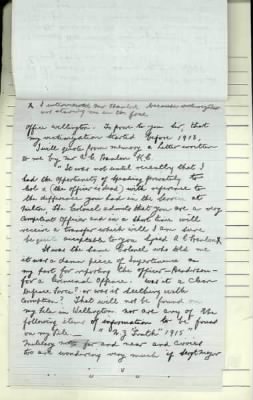 X I interviewed Mr Hanlon because
me in the face
Office Wellington. To prove to you Sir, that
my victimization started before 1913,
I will quote from memory a letter written
to me by Mr A C Hanlon K.C.
"It was not until recently that I
had the opportunity of speaking privately to
Col x (the officer is dead) with reference to
the difference you had in the Service at
Nelson. The Colonel admits that you are a very
Competent Officer and in a short time will
receive a transfer which will I am sure
be quite acceptable to you Signed A C Hanlon X
It was the same Colonel who told me
it was a damn piece of impertinence on
my part for reporting the officer - Henderson -
for a Criminal Offence. Was it a Clean
Defence Force? - or was it seething with
Corruption? That will not be found on
my file in Wellington nor are any of the
following items of information to be found
on my file. — "N Z Truth" 1915"
Military men far and near and
too are wondering very much if Sergt Major